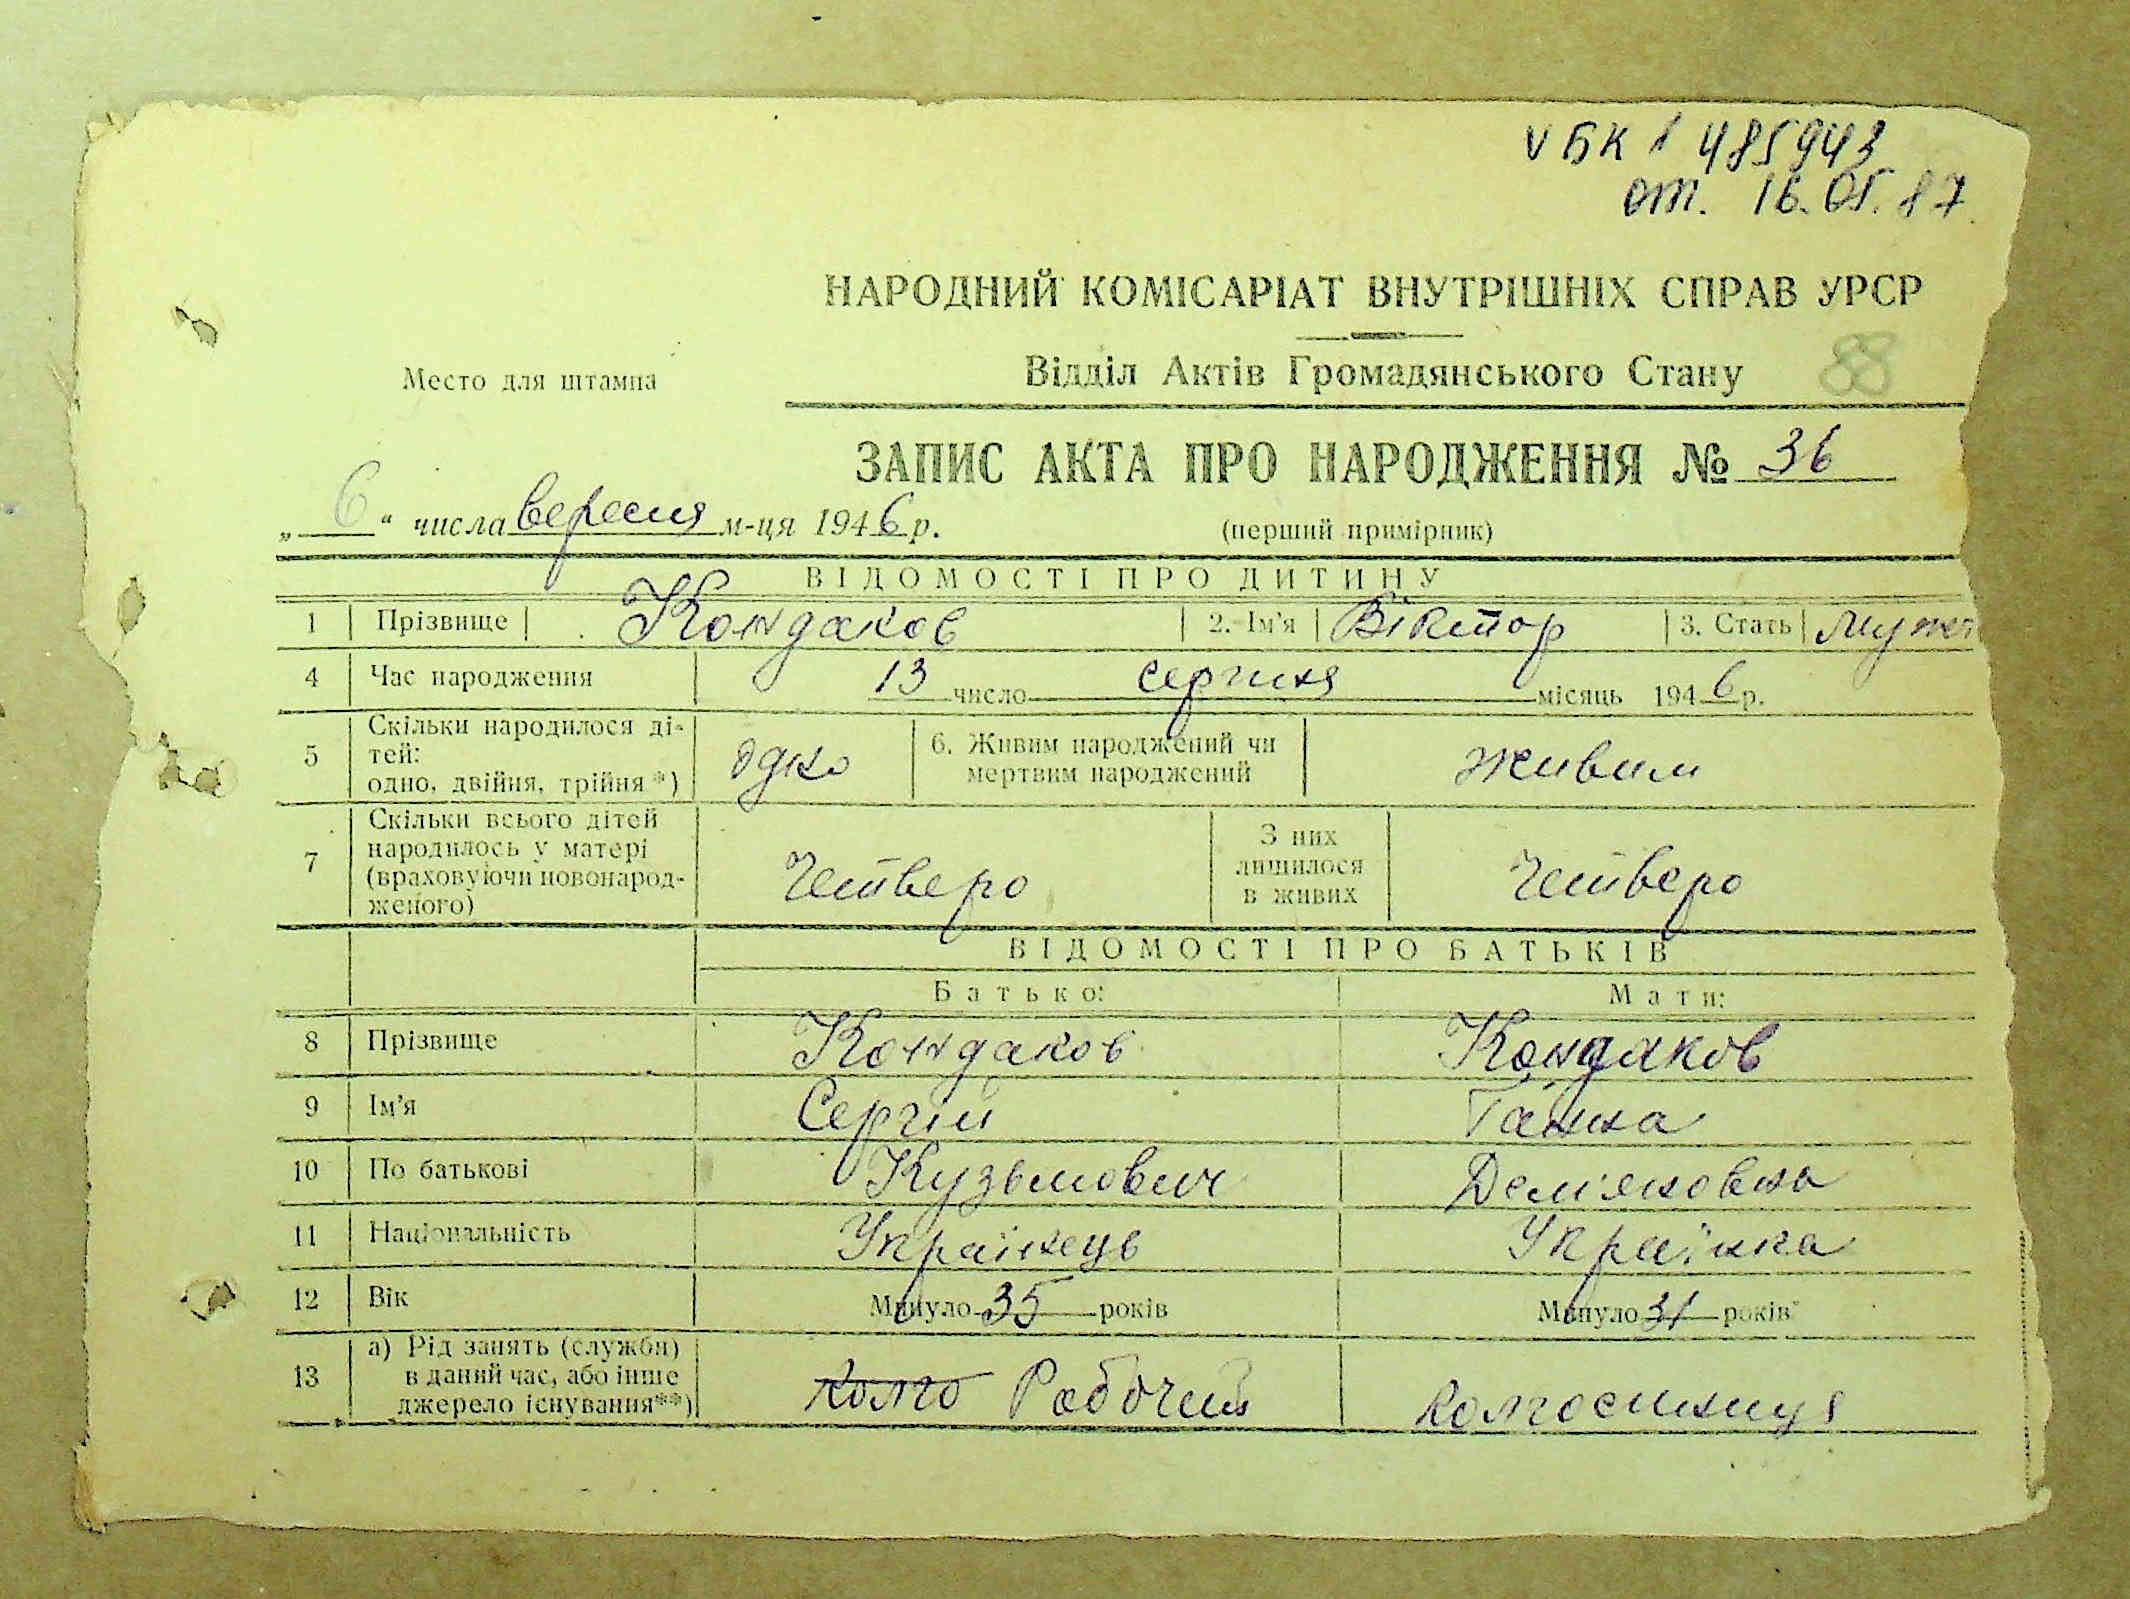 V БК № 485943
от. 16.05.87
НАРОДНИЙ КОМІСАРІАТ ВНУТРІШНІХ СПРАВ УРСР
Место для штампа
Відділ Актів Громадянського Стану 88
ЗАПИС АКТА ПРО НАРОДЖЕННЯ № 36
„ 6 “ числа вересня м-ця 1946 р.
(перший примірник)
ВІДОМОСТІ ПРО ДИТИНУ
1 Прізвище Кондаков 2. Ім'я Віктор 3. Стать
4 Час народження 13 число серпня місяць 1946 р.
5 Скільки народилося ді-
тей:
одно, двійня, трійня *) одно
6. Живим народжений чи
мертвим народжений живим
7 Скільки всього дітей
народилось у матері
(враховуючи новонарод-
женого) Четверо
З них
лишилося
в живих Четверо
ВІДОМОСТІ ПРО БАТЬКІВ
Батько: Мати:
8 Прізвище Кондаков Кондаков
9 Ім'я Сергій Ганна
10 По батькові Кузьмович Дем'яновна
11 Національність Українець Українка
12 Вік Минуло 35 років Минуло 31 років
13 а) Рід занять (служби)
в даний час, або інше
джерело існування**) колго Робочий колгоспниця